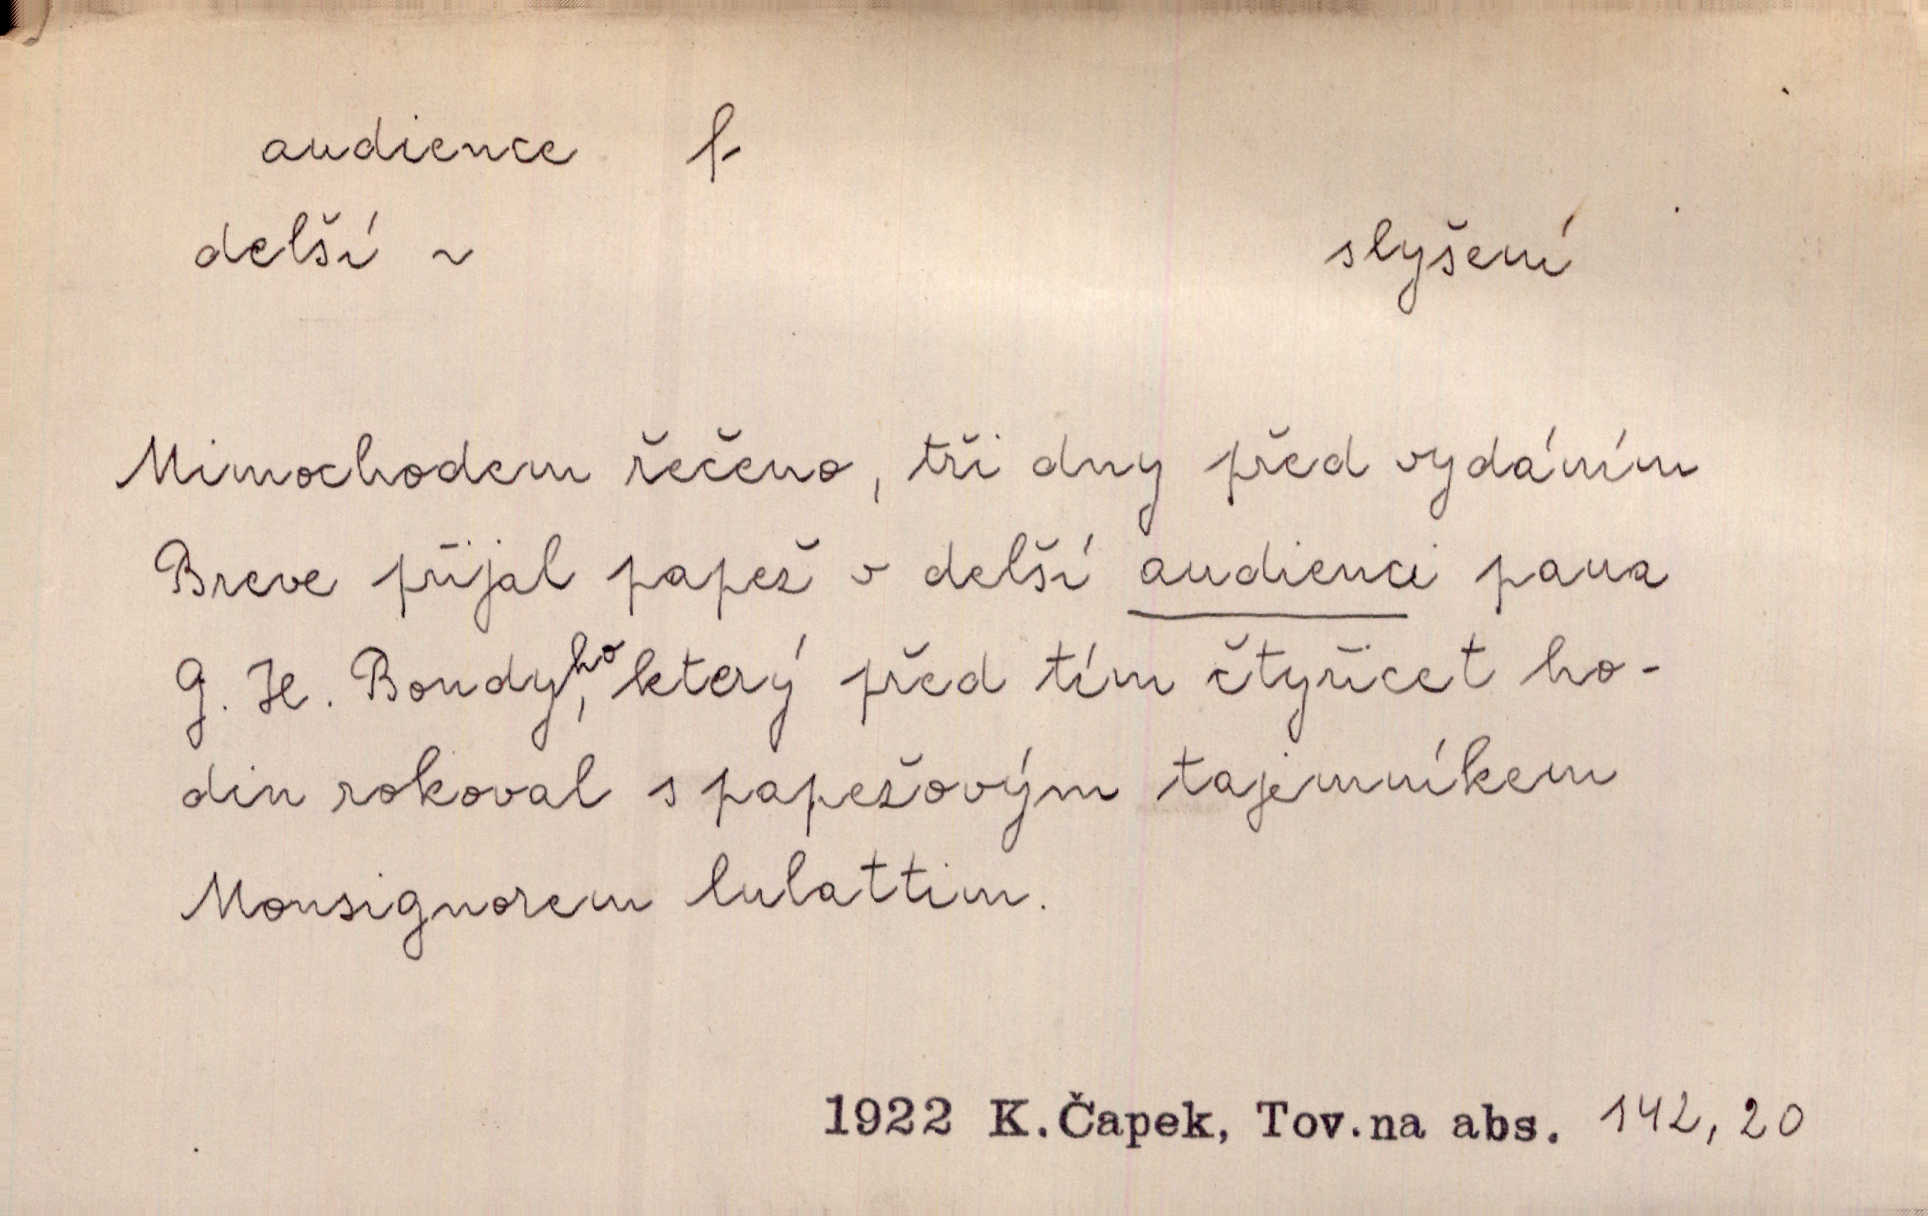 audience f.
delší ~ slyšení
Mimochodem řečeno, tři dny před vydáním
Breve přijal papež v delší audienci pana
G. H. Bondyho, který před tím čtyřicet ho-
din rokoval s papežovým tajemníkem
Monsignorem lulattim.
1922 K. Čapek, Tov. na abs. 142, 20